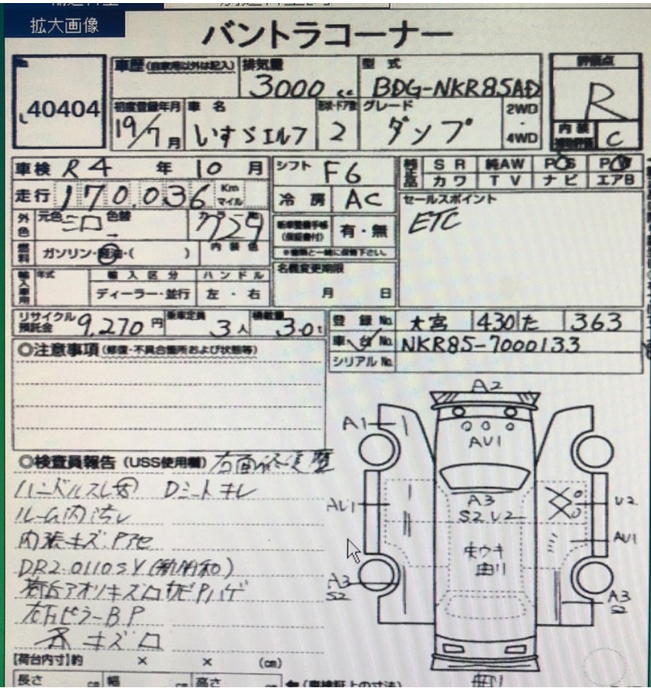 拡大画像
バントラコーナー
No. 40404
車歴 (自家用以外は記入)
排気量 3000 cc
型式 BDG-NKR85AD
評価点 R
初度登録年月 19/7月
車名 いすゞエルフ
形状・ドア数 2
グレード ダンプ
2WD・4WD
内装 C
車検 R4年10月
シフト F6
純正品 SR 純AW PS PW
カワ TV ナビ エアB
走行 170,036 Km マイル
冷房 AC
セールスポイント
ETC
外色 元色 シロ 色替 →
カラーNo. 729
内装色
有・無
燃料 ガソリン・軽油・( )
名義変更期限 月 日
輸入車用 年式 輸入区分 ハンドル
ディーラー・並行 左・右
リサイクル預託金 9,270円
乗車定員 3人
積載量 3.0t
登録No. 大宮 430 た 363
車台No. NKR85-7000133
シリアルNo.
◎注意事項 (修復・不具合箇所および状態等)
◎検査員報告 (USS使用欄) 右面修復歴
ハンドルスレ Dシートキレ
ルーム内汚レ
内張キズ
DR2.0110SY
荷台アオリキズ
左右ピラーBP
キズ
A2
A1
AV1
AV1
A3
S2 V2
V2
AV1
A3
S2
A3
S2
【荷台内寸】約 × × (cm)
長さ cm 幅 cm 高さ cm
(車検証上の寸法)